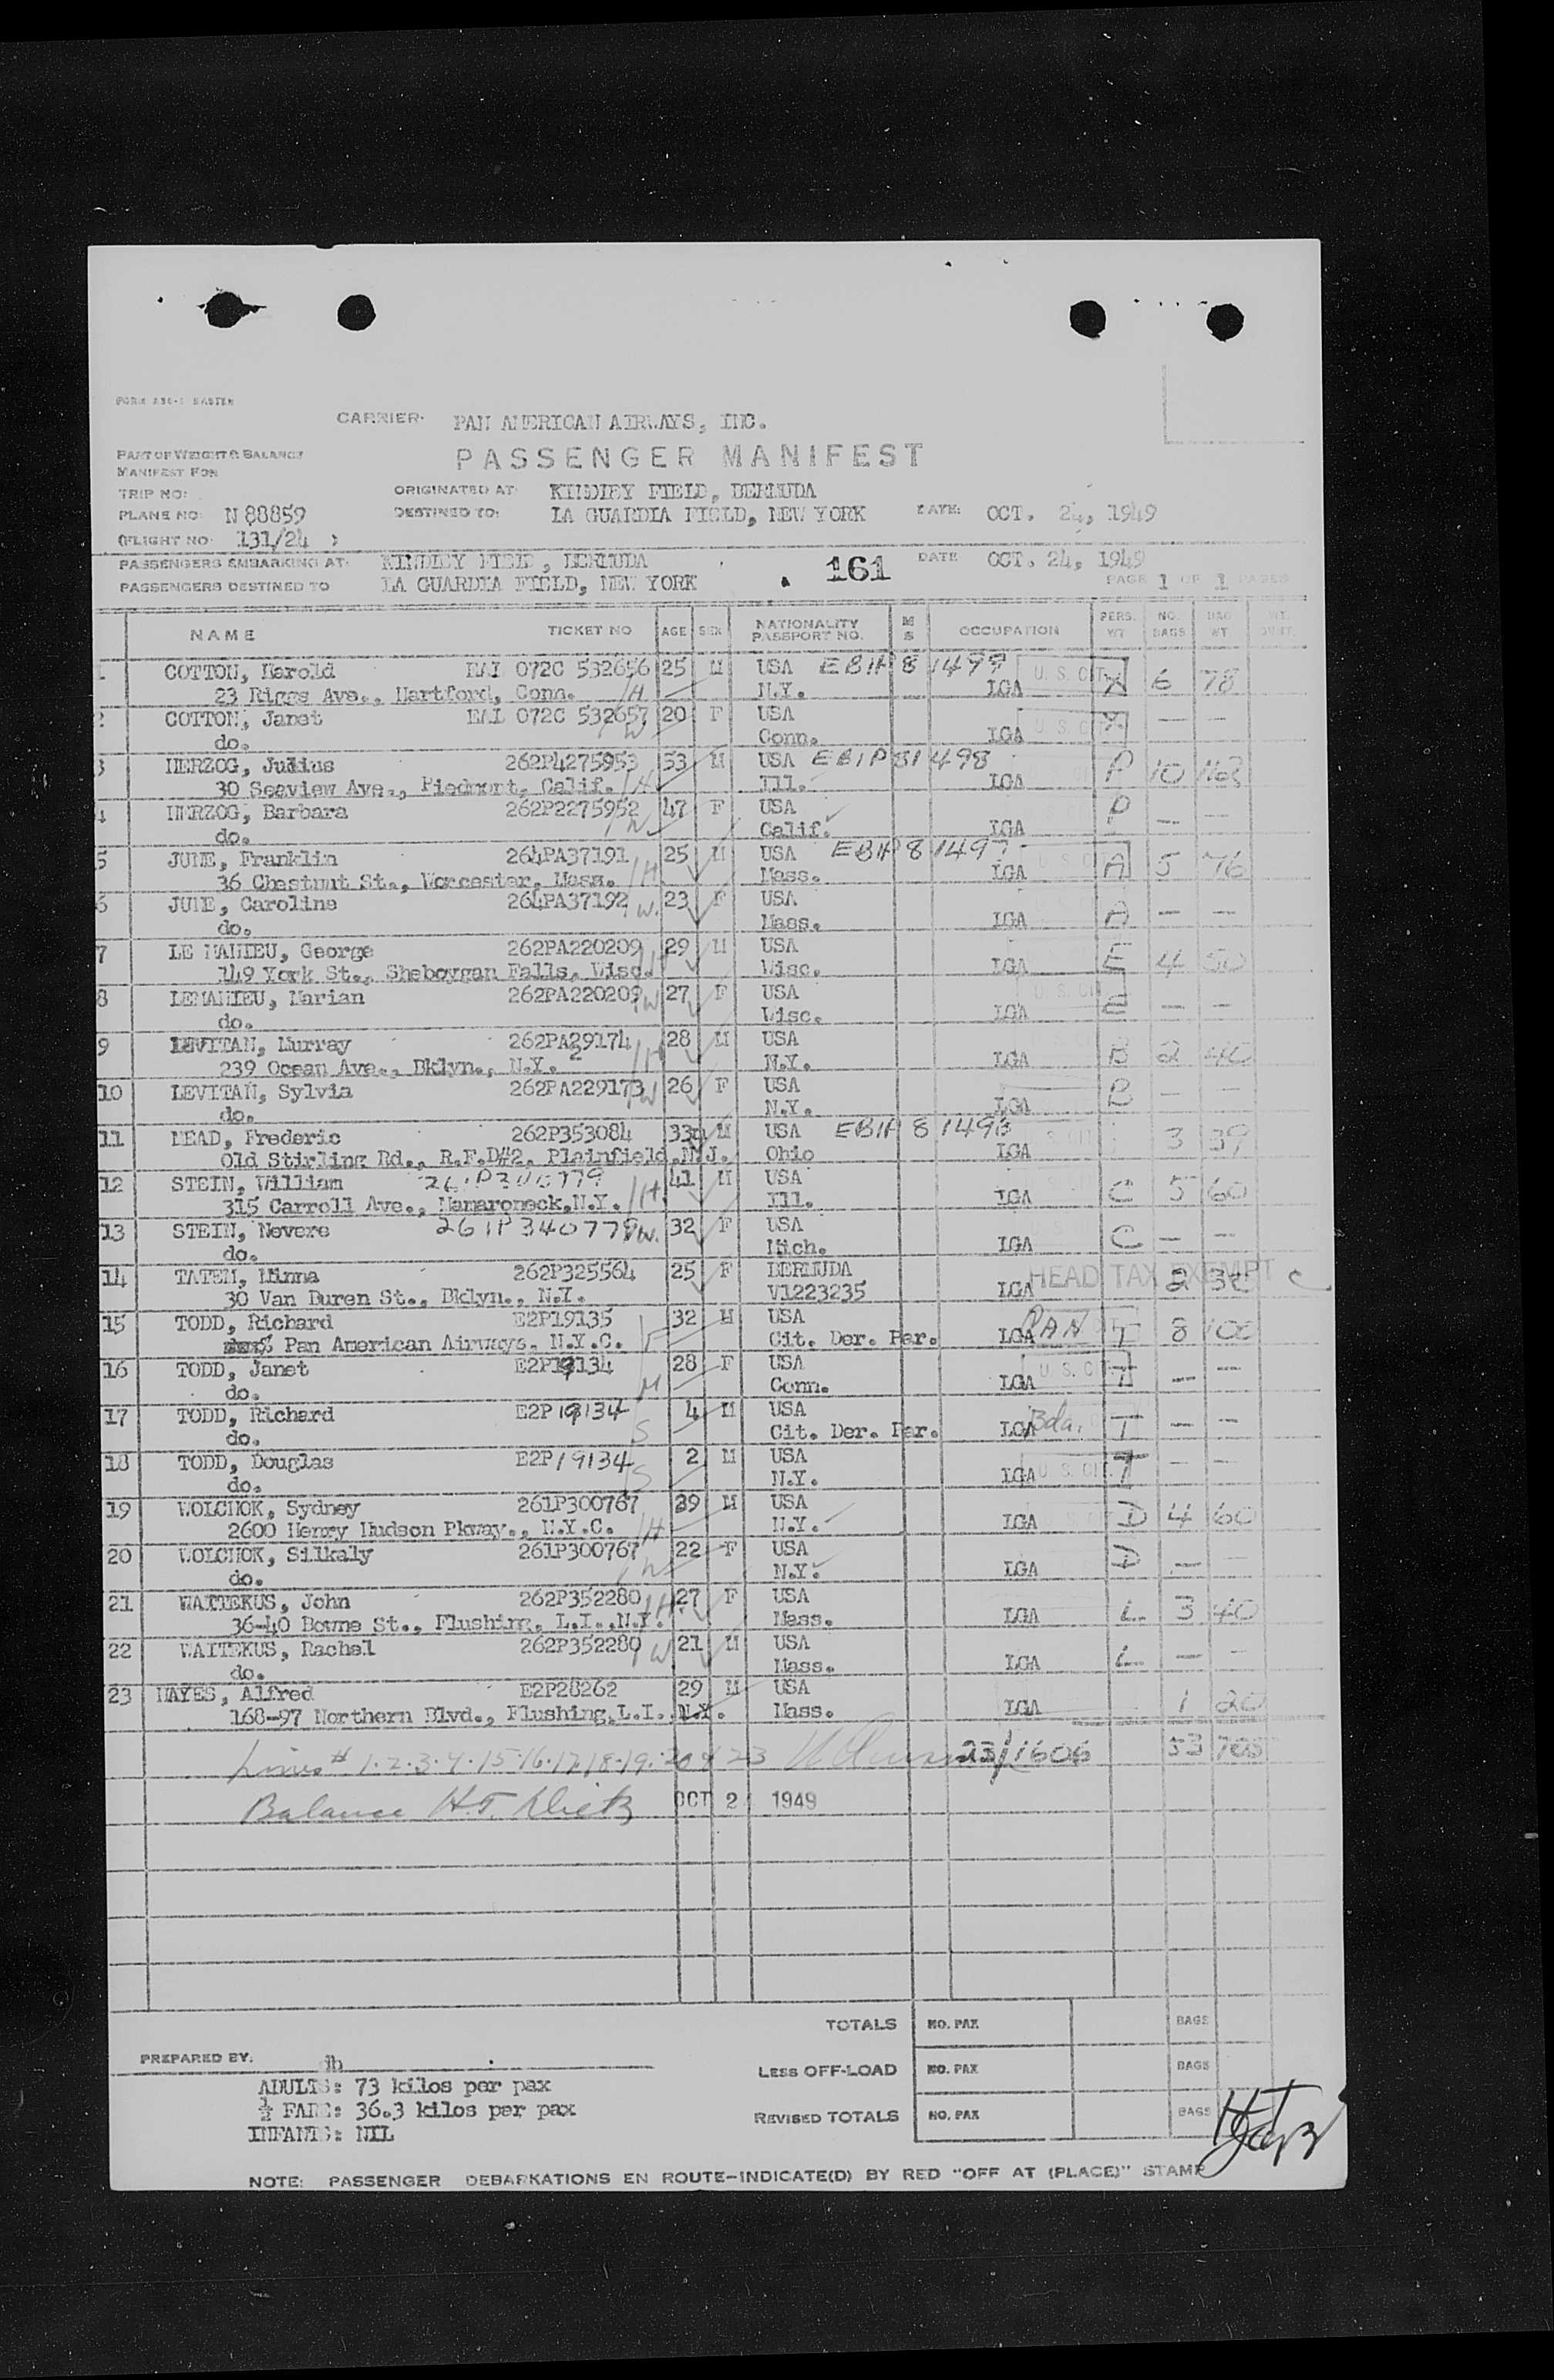 CARRIER: PAN AMERICAN AIRWAYS, INC.
PART OF WEIGHT & BALANCE
MANIFEST FOR
PASSENGER MANIFEST
TRIP NO:
ORIGINATED AT: KINDLEY FIELD, BERMUDA
PLANE NO: N 88859
DESTINED TO: LA GUARDIA FIELD, NEW YORK DATE: OCT. 24, 1949
(FLIGHT NO. 131/24 )
PASSENGERS EMBARKING AT: KINDLEY FIELD, BERMUDA 161 DATE OCT. 24, 1949
PASSENGERS DESTINED TO LA GUARDIA FIELD, NEW YORK PAGE 1 OF 1 PAGES
NAME TICKET NO AGE SEX NATIONALITY PASSPORT NO. M S OCCUPATION PERS. WT NO. BAGS BAG WT
1 COTTON, Harold EAL 072C 532656 25 M USA EBIH 8 1499 U. S. CIT. X 6 78
23 Riggs Ave., Hartford, Conn. H N.Y. LGA
2 COTTON, Janet EAL 072C 532657 20 F USA U. S. CIT. X — —
do. W Conn. LGA
3 HERZOG, Julius 262P4275953 53 M USA EBIP 81 498 P 10 163
30 Seaview Ave., Piedmont, Calif. H Ill. LGA
4 HERZOG, Barbara 262P2275952 47 F USA P — —
do. W Calif. LGA
5 JUNE, Franklin 264PA37191 25 M USA EBIH 8 1497 A 5 76
36 Chestnut St., Worcester, Mass. H Mass. LGA
6 JUNE, Caroline 264PA37192 23 F USA A — —
do. W. Mass. LGA
7 LE MAHIEU, George 262PA220209 29 M USA E 4 50
149 York St., Sheboygan Falls, Wisc. H Wisc. LGA
8 LEMAHIEU, Marian 262PA220209 27 F USA U. S. CIT. E — —
do. W Wisc. LGA
9 LEVITAN, Murray 262PA29174 28 M USA B 2 40
239 Ocean Ave., Bklyn., N.Y. 2 H N.Y. LGA
10 LEVITAN, Sylvia 262PA229173 26 F USA B — —
do. W N.Y. LGA
11 MEAD, Frederic 262P353084 33 M USA EBIH 8 1496 3 39
Old Stirling Rd., R.F.D#2, Plainfield, N.J. Ohio LGA
12 STEIN, William 41 M USA C 5 60
315 Carroll Ave., Mamaroneck, N.Y. H. Ill. LGA
13 STEIN, Nevere 32 F USA C — —
do. W. Mich. LGA
14 TATEM, Minna 262P325564 25 F BERMUDA HEAD TAX EXEMPT 2 C
30 Van Buren St., Bklyn., N.Y. V1223235 LGA
15 TODD, Richard E2P19135 32 M USA PAN T 8 100
% Pan American Airways, N.Y.C. F Cit. Der. Par. LGA
16 TODD, Janet E2P19134 28 F USA U. S. CIT. T — —
do. M Conn. LGA
17 TODD, Richard E2P19134 4 M USA Bda. T — —
do. S Cit. Der. Par. LGA
18 TODD, Douglas E2P19134 2 M USA U. S. CIT. T — —
do. S N.Y. LGA
19 WOLCHOK, Sydney 261P300767 29 M USA D 4 60
2600 Henry Hudson Pkway., N.Y.C. H N.Y. LGA
20 WOLCHOK, Silkaly 261P300767 22 F USA D — —
do. W N.Y. LGA
21 WAITEKUS, John 262P352280 27 F USA L 3 40
36-40 Bowne St., Flushing, L.I.,N.Y. H. Mass. LGA
22 WAITEKUS, Rachel 262P352280 21 M USA L — —
do. W Mass. LGA
23 HAYES, Alfred E2P28262 29 M USA 1 20
168-97 Northern Blvd., Flushing, L.I. N.Y. Mass. LGA
Lines # 1·2·3·4·15·16·17·18·19·20 & 23 23/1606 53
Balance OCT 2 1949
TOTALS NO. PAX BAGS
PREPARED BY:
LESS OFF-LOAD NO. PAX BAGS
ADULTS: 73 kilos per pax
½ FARE: 36.3 kilos per pax
REVISED TOTALS NO. PAX BAGS
INFANTS: NIL
NOTE: PASSENGER DEBARKATIONS EN ROUTE-INDICATE(D) BY RED "OFF AT (PLACE)" STAMP